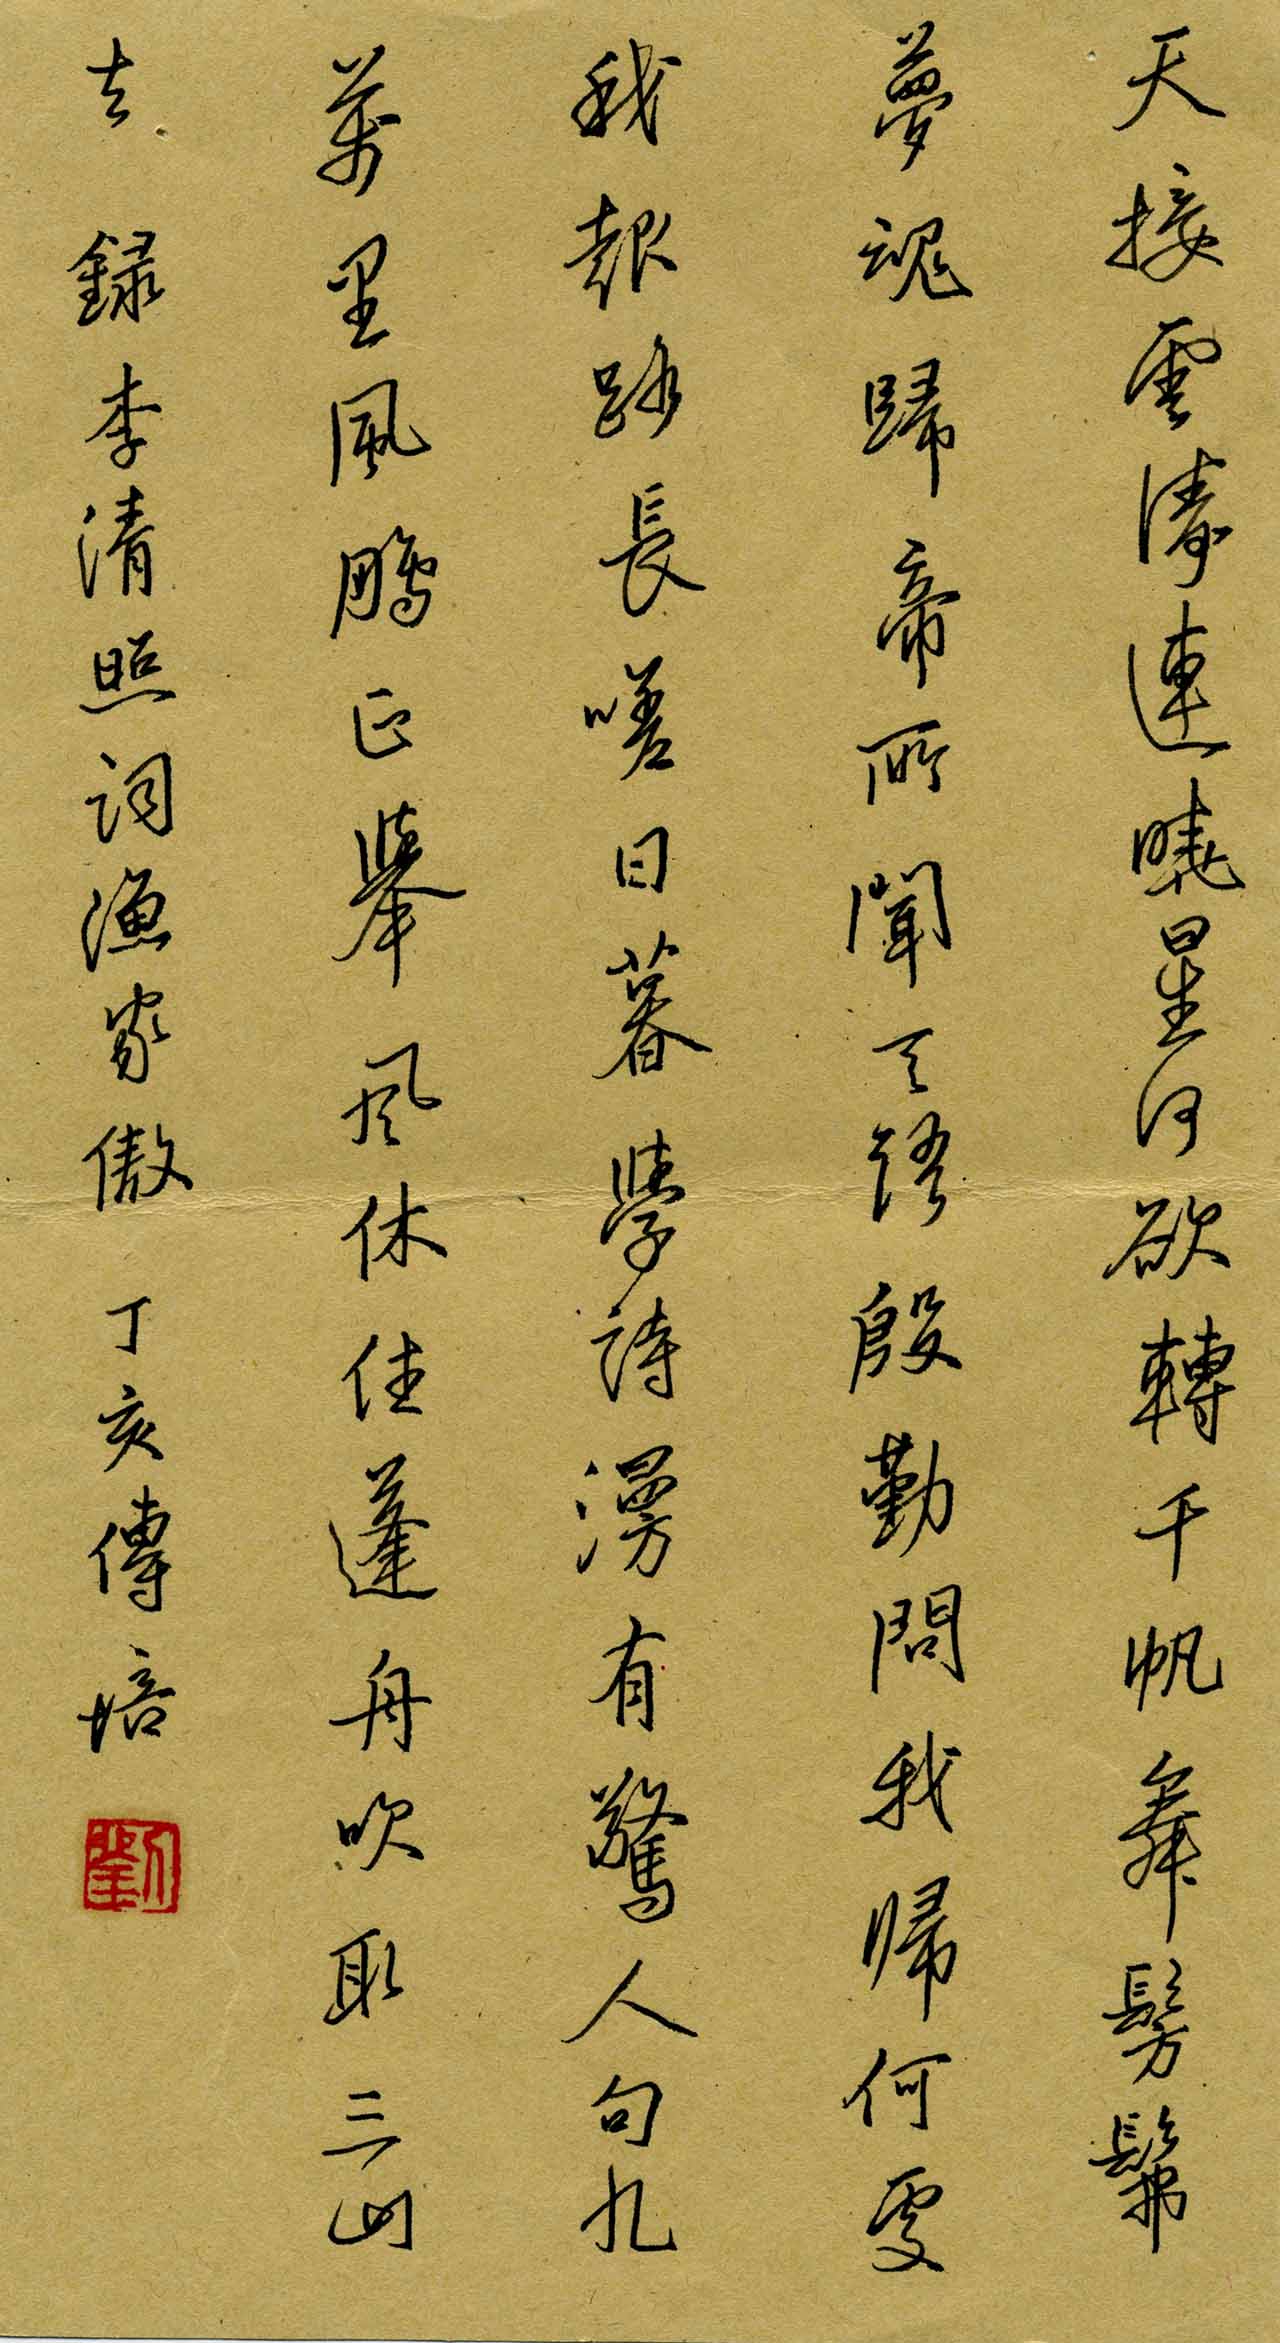 天接雲濤連曉星河欲轉千帆舞髣髴
夢魂歸帝所聞天語殷勤問我歸何處
我報路長嗟日暮學詩漫有驚人句九
萬里風鵬正舉風休住蓬舟吹取三山
去 錄李清照詞漁家傲 丁亥傳培
劉